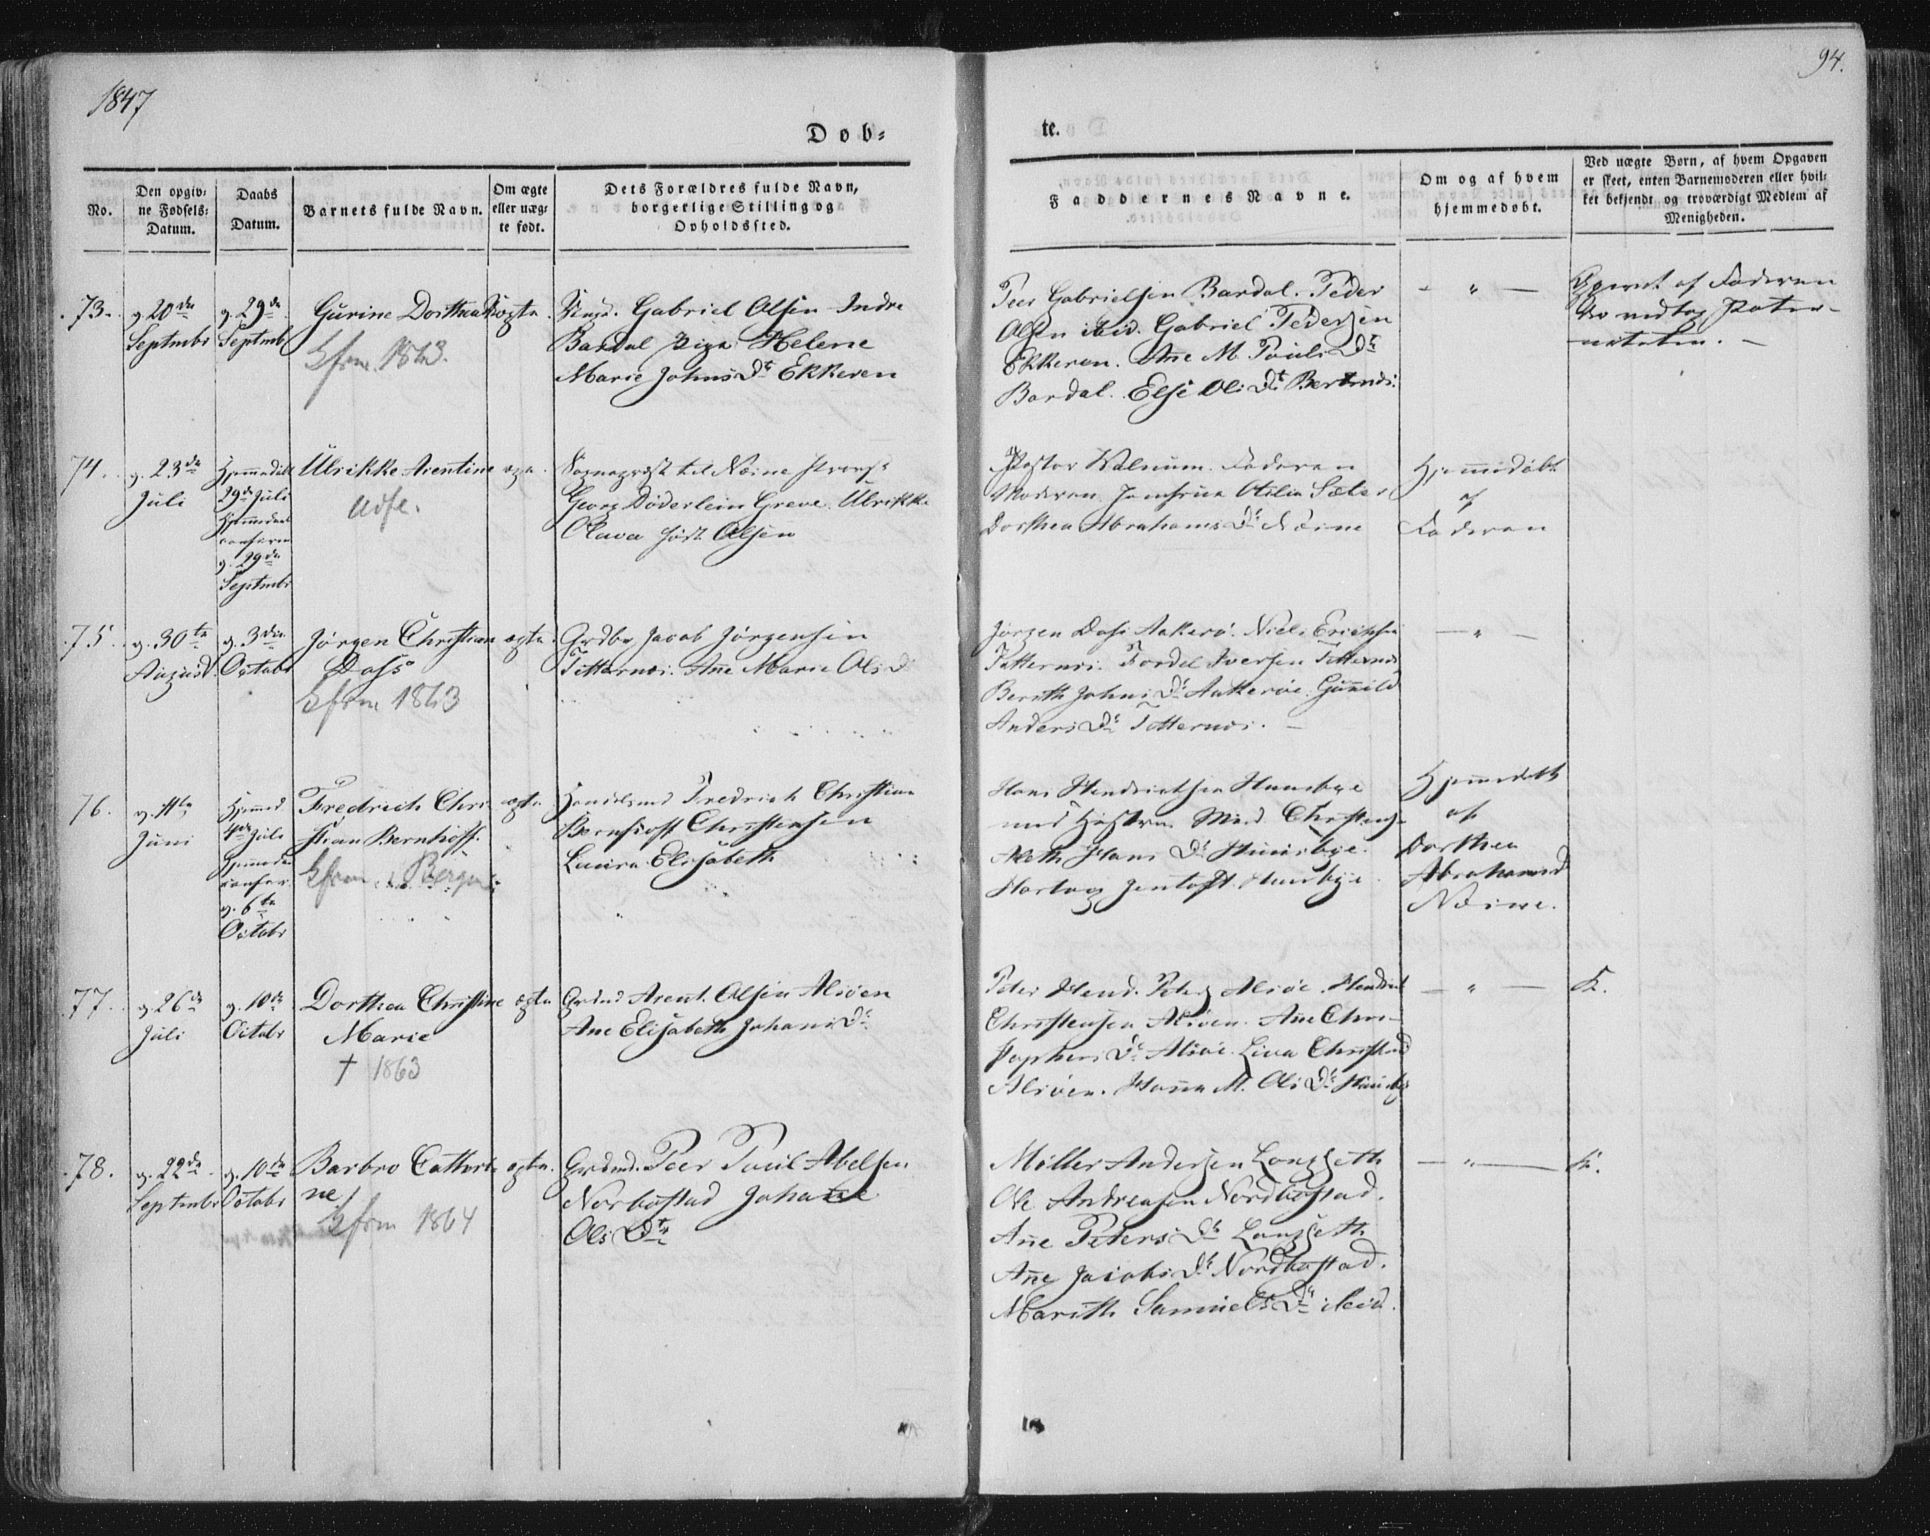 1847
94.
Døb-
te.
No.
Den opgiv-
ne Fødsels-
Datum.
Daabs
Datum.
Barnets fulde Navn.
Om ægte
eller uæg-
te født.
Dets Forældres fulde Navn,
borgerlige Stilling og
Opholdssted.
Faddernes Navne.
Om og af hvem
hjemmedøbt.
Ved uægte Børn, af hvem Opgaven
er skeet, enten Barnemoderen eller hvil-
ket bekjendt og troværdigt Medlem af
Menigheden.
73.
d. 20de
Septmbr
d. 29de
Septmbr
Gurine Dorthea
uægte
Kfrm. 1863.
Ungk. Gabriel Olsen Indre
Bardal Pige Helene
Marie Johns Dr Ekkeren
Peer Gabrielsen Bardal. Peder
Olsen ibid. Gabriel Pedersen
Ekkeren. Ane M. Pouls Dr
Bardal. Else Ols Dr
— " —
af Faderen
der vedtog Pater-
niteten. —
74.
d. 23de
Juli
Hjemmedøbt
29de Juli
Hjemmedaab
d. 29de
Septmbr
Ulrikke Arentine
ægte
Sognepræst til Næsne
Georg Døderlein Greve. Ulrikke
Olava født Olsen
Pastor Walnum. Faderen
Moderen. Jomfrue Otilia Sæter
Dorthea Abrahams Dr Næsne
Hjemmedøbt
af
Faderen
75.
d. 30te
August
d. 3die
Octobr
Jørgen Christian
Dass
Kfrm 1863
ægte
Grdbr Jacob Jørgensen
Tetternæs. Ane Marie Ols D
Jørgen Dass Aakerø. Niels Ericksen
Tetternæs. Tordel Iversen Tetternæs
Bereth Johns Dr Aakerøe. Gunild
Anders Dr Tetternæs. —
— " —
76.
d. 11te
Juni
Hjemmed
4de Juli
d. 6te
Octobr
Fredrich Chri-
stian Bernhoft.
Kfrm i Bergen
ægte
Handelsmd Fredrich Christian
Bernhoft Christensen
Laura Elisabeth
Hans Hendrichsen Huusbye
med Hustru Md Christense
Aleth Hans Dr Huusbye.
Hartvig Jentoft Huusbye
Hjemmedøbt
af
Dorthea
Abrahamsd
Næsne.
77.
d. 26de
Juli
d. 10de
Octobr
Dorthea Christine
Marie
† 1863
ægte
Grdmd Arent Olsen Alsøen
Ane Elisabeth Johans Dr
Peter Hend. Peters Alsøe. Hendrick
Christensen Alsøen. Ane Chri-
stophers Dr Alsøe. Liva Christensd
Alsøen. Hanna M. Ols Dr Huusby
— " —
F.
78.
d. 22de
Septmbr
d. 10de
Octobr
Barbro Cathri-
ne
Kfrm 1864
ægte.
Grdmd. Peer Poul Abelsen
Norbostad Johana
Ols Dr
Møller Andersen Langseth
Ole Andreasen Nordbostad.
Ane Peters Dr Langseth
Ane Jacobs Dr Nordbostad.
Mareth Samuels Dr ibid.
— " —
F.